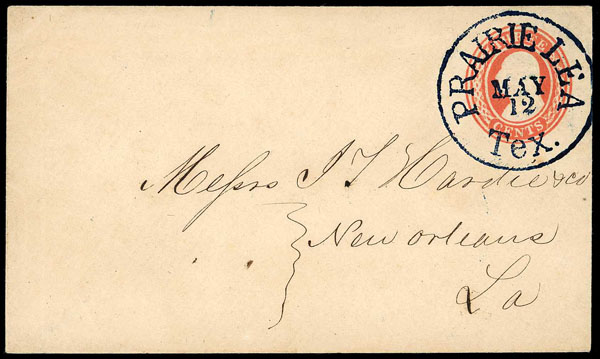 PRAIRIE LEA
MAY
12
Tex.
CENTS
Messrs J T Hardie & co
New orleans
La